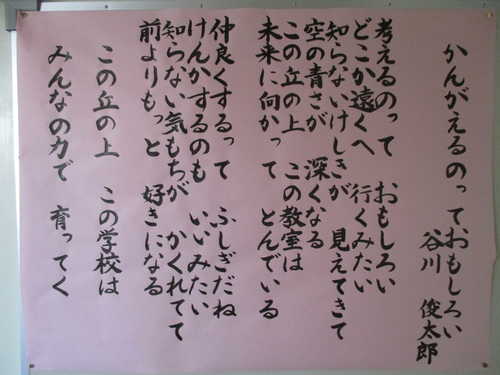 かんがえるのっておもしろい
谷川 俊太郎
考えるのって おもしろい
どこか遠くへ 行くみたい
知らないけしきが 見えてきて
空の青さが 深くなる
この丘の上 この教室は
未来に向かって とんでいる
仲良くするって ふしぎだね
けんかするのも いいみたい
知らない気もちが かくれてて
前よりもっと 好きになる
この丘の上 この学校は
みんなの力で 育ってく